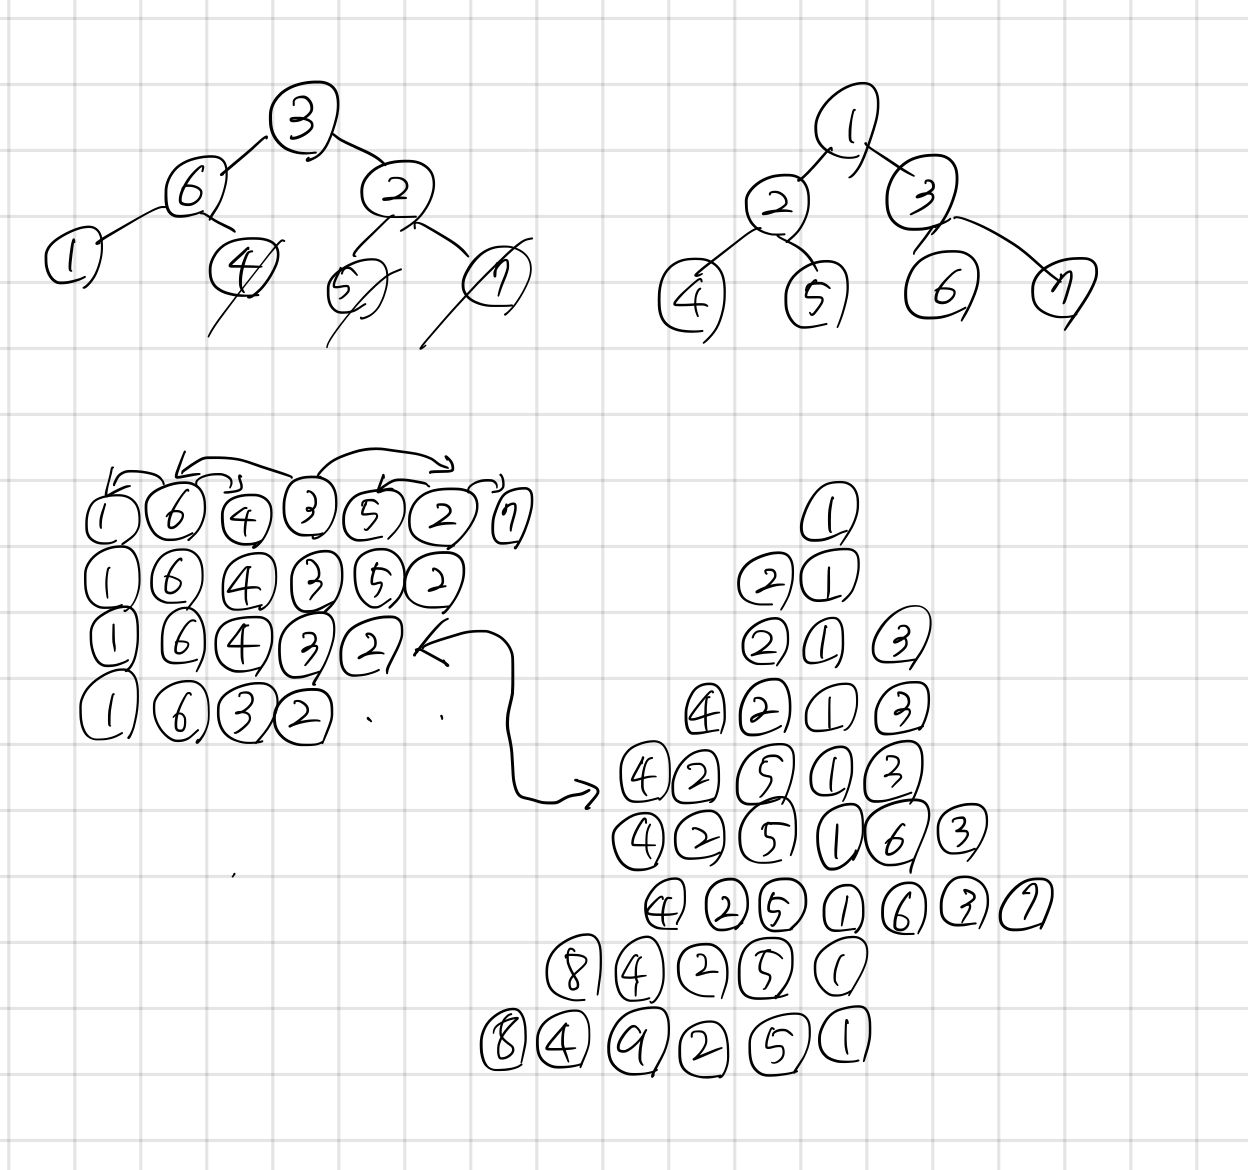 3
6 2
1 4 5 7
1
2 3
4 5 6 7
1 6 4 3 5 2 7
1 6 4 3 5 2
1 6 4 3 2
1 6 3 2
1
2 1
2 1 3
4 2 1 3
4 2 5 1 3
4 2 5 1 6 3
4 2 5 1 6 3 7
8 4 2 5 1
8 4 9 2 5 1